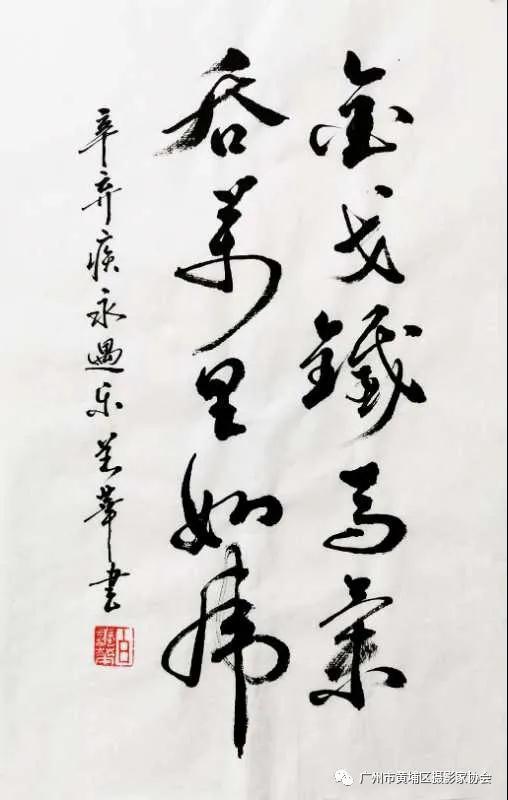 金戈鐵马氣
吞萬里如虎
辛弃疾永遇乐 華書
广州市黄埔区摄影家协会